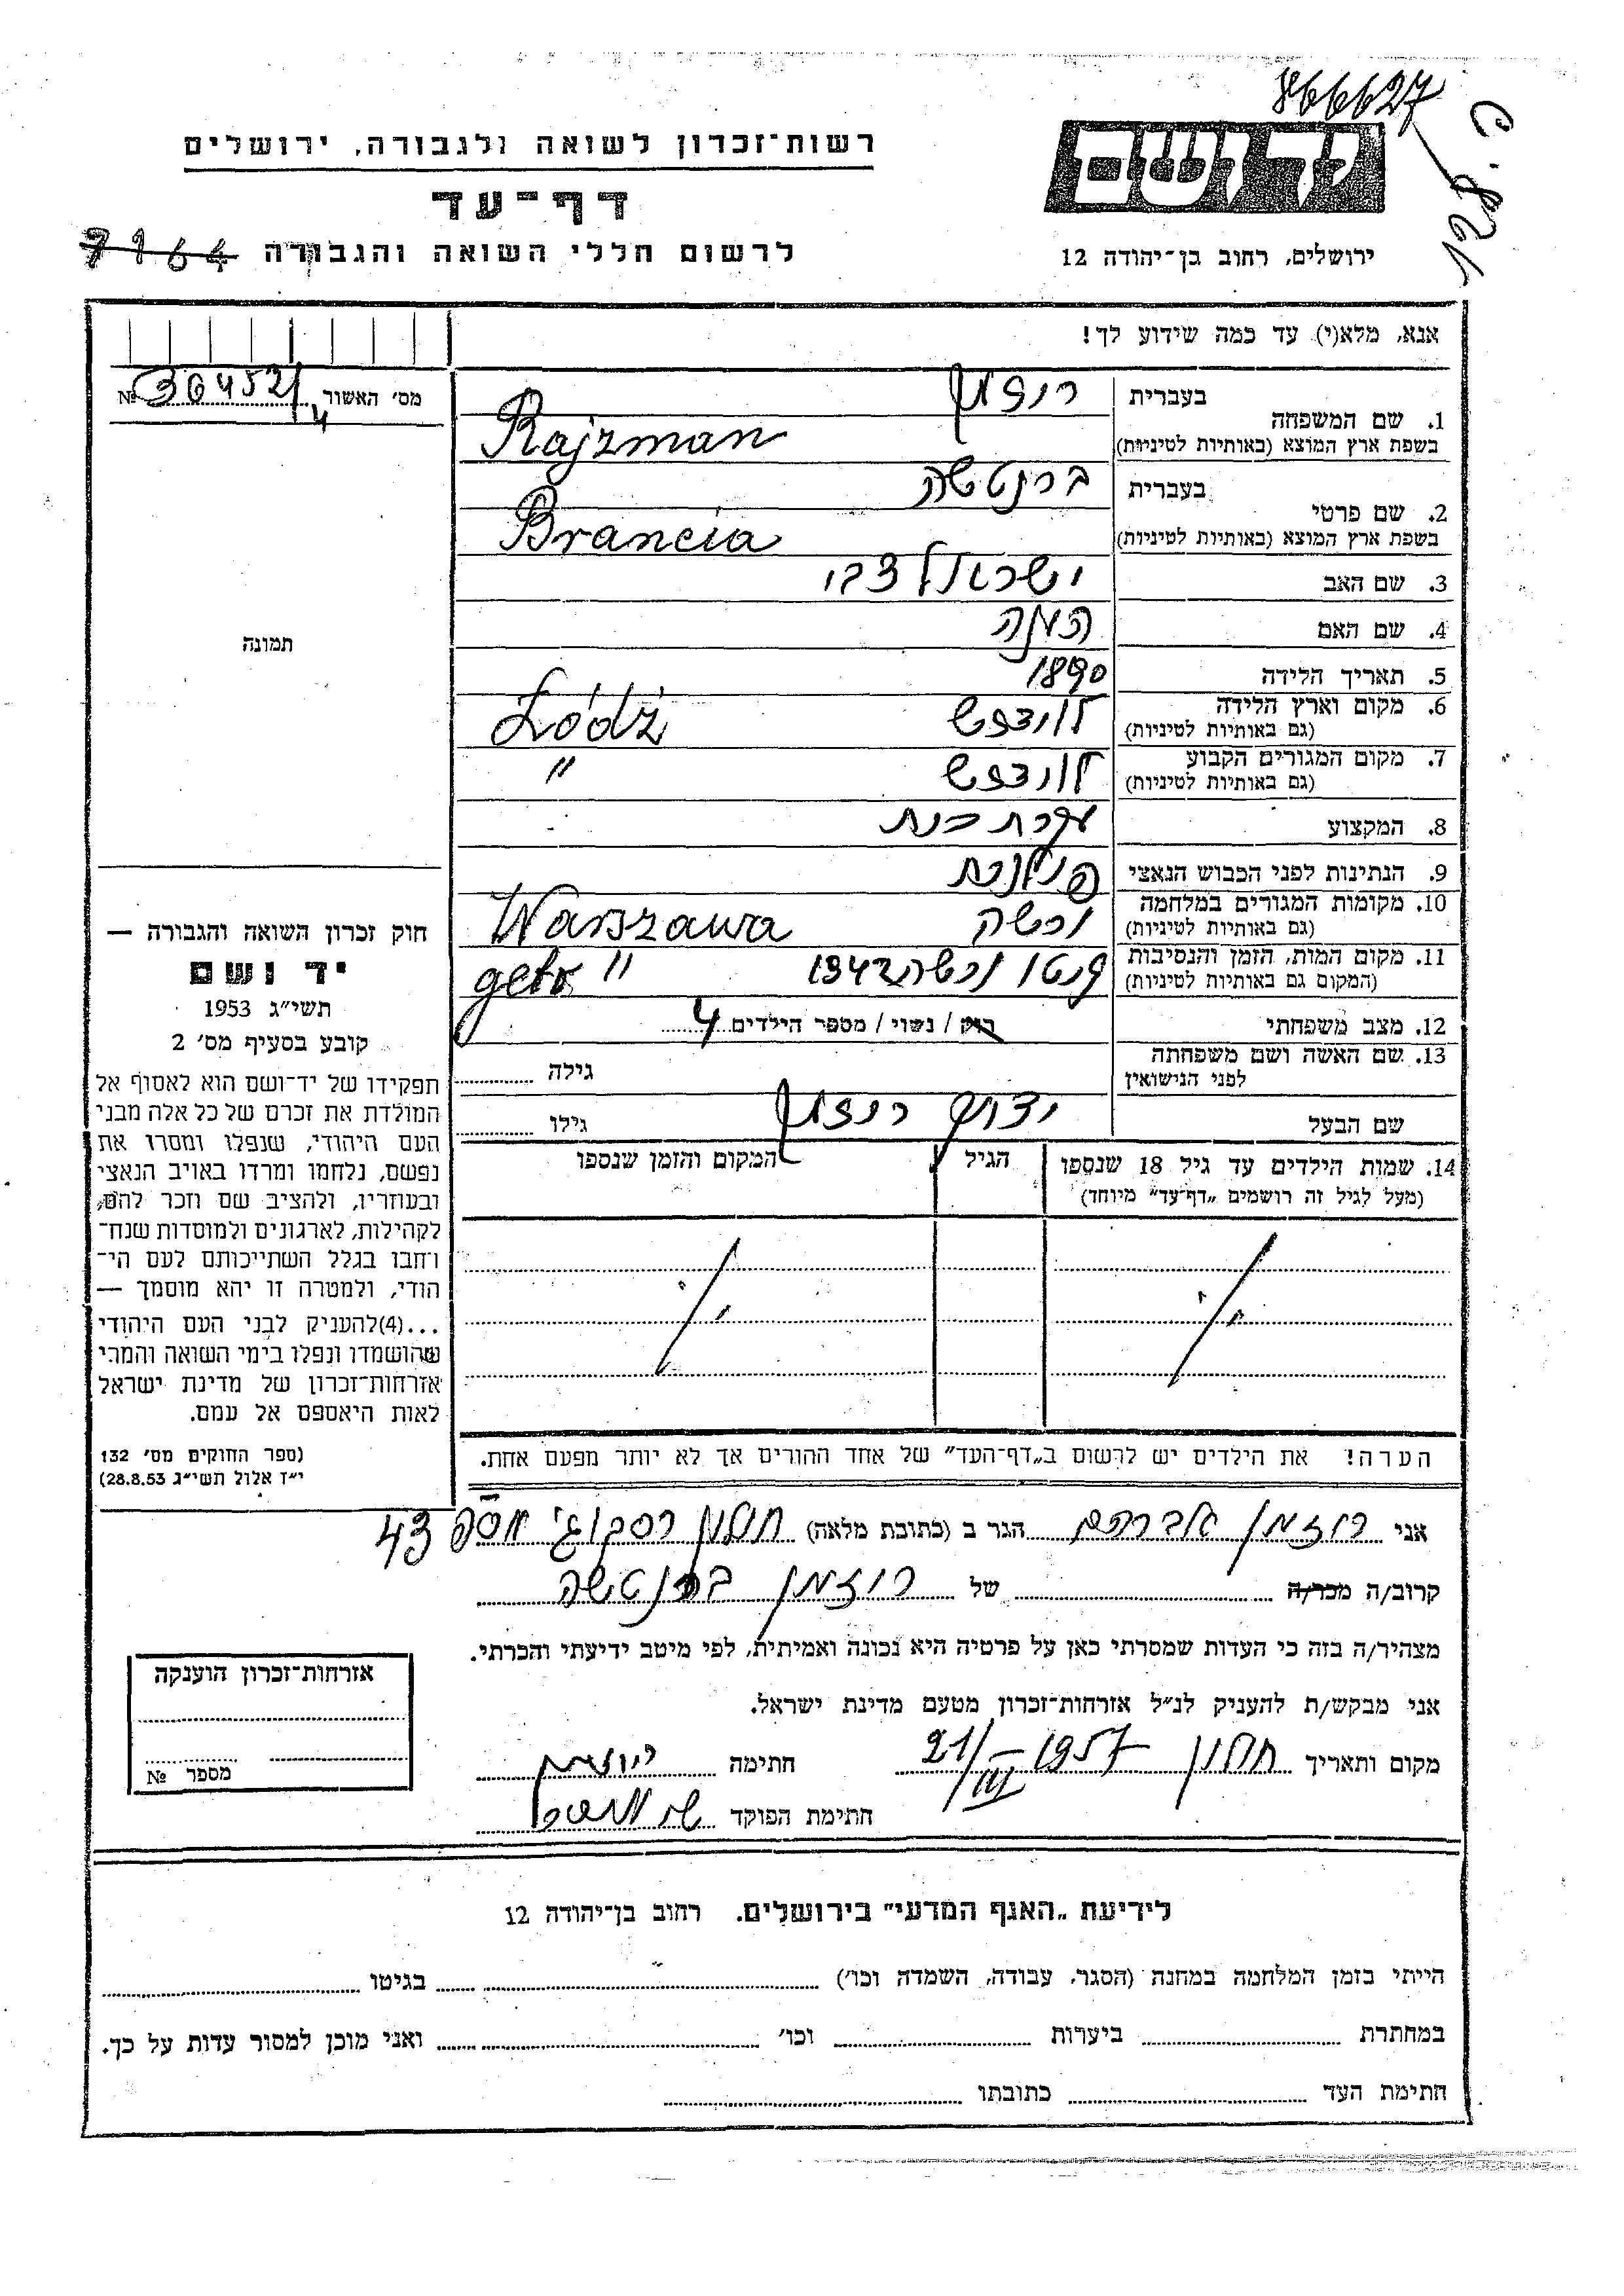 866627
C.821
רשות־זכרון לשואה ולגבורה, ירושלים
דף־עד
לרשום חללי השואה והגבורה 7164
ידושם
ירושלים, רחוב בן־יהודה 12
אנא, מלא(י) עד כמה שידוע לך!
מס׳ האשור № 36452/4
1. שם המשפחה
בעברית רוזמן
בשפת ארץ המוצא (באותיות לטיניות) Rajzman
2. שם פרטי
בעברית ברנטשה
בשפת ארץ המוצא (באותיות לטיניות) Brancia
3. שם האב ישראל צבי
4. שם האם
5. תאריך הלידה 1890
6. מקום וארץ הלידה לודזש Łódź
(גם באותיות לטיניות)
7. מקום המגורים הקבוע לודזש "
(גם באותיות לטיניות)
8. המקצוע עקרת בית
9. הנתינות לפני הכבוש הנאצי פולנית
10. מקומות המגורים במלחמה ורשה Warszawa
(גם באותיות לטיניות)
11. מקום המות, הזמן והנסיבות גטו ורשה 1942 geto "
(המקום גם באותיות לטיניות)
12. מצב משפחתי רוק / נשוי / מספר הילדים 4
13. שם האשה ושם משפחתה
לפני הנישואין
גילה
שם הבעל רוזמן
גילו
14. שמות הילדים עד גיל 18 שנספו
(מעל לגיל זה רושמים „דף־עד” מיוחד)
הגיל
המקום והזמן שנספו
הערה! את הילדים יש לרשום ב„דף־העד” של אחד ההורים אך לא יותר מפעם אחת.
תמונה
חוק זכרון השואה והגבורה —
יד ושם
תשי״ג 1953
קובע בסעיף מס׳ 2
תפקידו של יד־ושם הוא לאסוף אל
המולדת את זכרם של כל אלה מבני
העם היהודי, שנפלו ומסרו את
נפשם, נלחמו ומרדו באויב הנאצי
ובעוזריו, ולהציב שם וזכר להם,
לקהילות, לארגונים ולמוסדות שנח־
רחבו בגלל השתייכותם לעם הי־
הודי, ולמטרה זו יהא מוסמך —
...(4)להעניק לבני העם היהודי
שהושמדו ונפלו בימי השואה והמרי
אזרחות־זכרון של מדינת ישראל
לאות היאספם אל עמם.
(ספר החוקים מס׳ 132
י״ז אלול תשי״ג 28.8.53)
אני רוזמן אברהם הגר ב (כתובת מלאה) חולון 43
קרוב/ה מכר/ה של רוזמן ברנטשה
מצהיר/ה בזה כי העדות שמסרתי כאן על פרטיה היא נכונה ואמיתית, לפי מיטב ידיעתי והכרתי.
אני מבקש/ת להעניק לנ״ל אזרחות־זכרון מטעם מדינת ישראל.
מקום ותאריך חולון 21/III-1957 חתימה
חתימת הפוקד
אזרחות־זכרון הוענקה
מספר №
לידיעת „האגף המדעי” בירושלים. רחוב בן־יהודה 12
הייתי בזמן המלחמה במחנה (הסגר, עבודה, השמדה וכו׳) בגיטו
במחתרת ביערות וכו׳ ואני מוכן למסור עדות על כך.
חתימת העד כתובתו